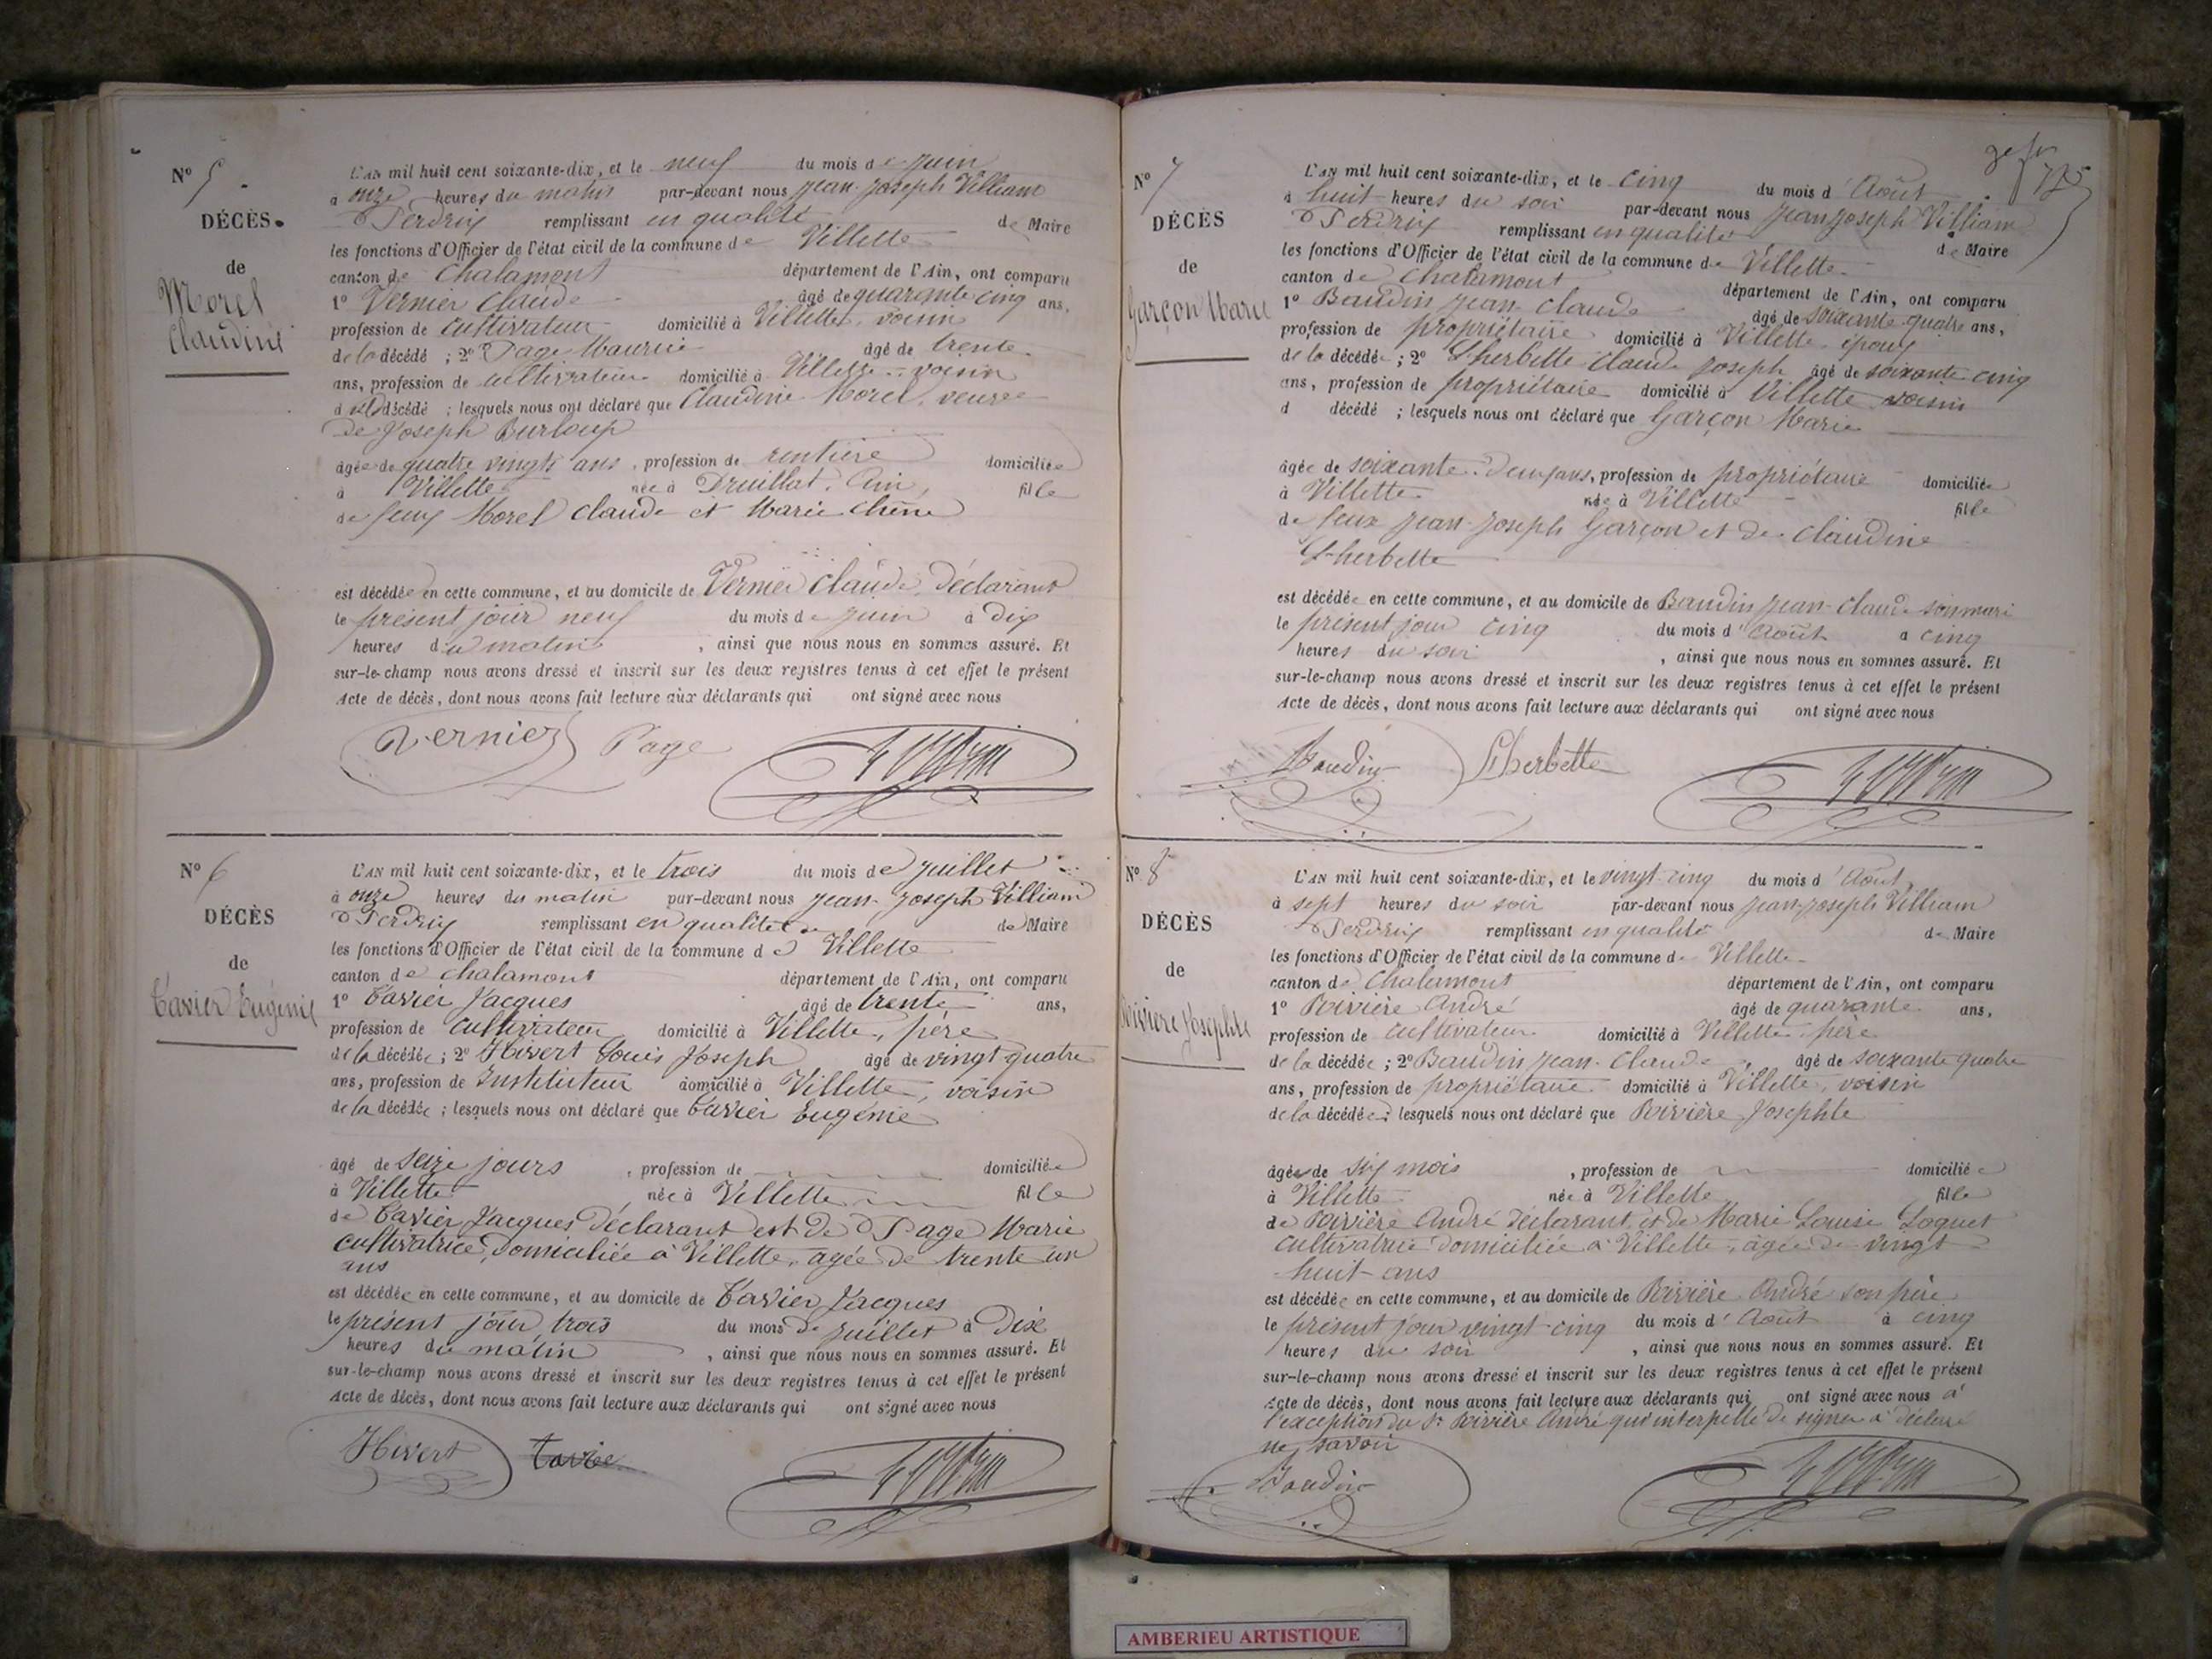 N° 5.
DÉCÈS.
de
Morel
Claudine
L'AN mil huit cent soixante-dix, et le neuf du mois de Juin
à onze heures du matin par-devant nous Jean-Joseph Villiam
D Perdrix remplissant en qualité de Maire
les fonctions d'Officier de l'état civil de la commune de Villette
canton de Chalamont département de l'Ain, ont comparu
1° Vernier Claude âgé de quarante cinq ans,
profession de cultivateur domicilié à Villette, voisin
de la décédé ; 2° Page Maurice âgé de trente
ans, profession de cultivateur domicilié à Villette voisin
décédé ; lesquels nous ont déclaré que Claudine Morel, veuve
de Joseph Burloup
âgée de quatre vingts ans, profession de rentière domiciliée
à Villette née à Druillat, Ain, fille
de feux Morel Claude et Marie Chêne
est décédée en cette commune, et au domicile de Vernier Claude, déclarant
le présent jour neuf du mois de Juin à dix
heures du matin, ainsi que nous nous en sommes assuré. Et
sur-le-champ nous avons dressé et inscrit sur les deux registres tenus à cet effet le présent
Acte de décès, dont nous avons fait lecture aux déclarants qui ont signé avec nous
Vernier Page
N° 6
DÉCÈS
de
Tavier Eugénie
L'AN mil huit cent soixante-dix, et le trois du mois de Juillet
à onze heures du matin par-devant nous Jean-Joseph Villiam
D Perdrix remplissant en qualité de Maire
les fonctions d'Officier de l'état civil de la commune de Villette
canton de Chalamont département de l'Ain, ont comparu
1° Tavier Jacques âgé de trente ans,
profession de cultivateur domicilié à Villette, père
de la décédée ; 2° Hivert Louis Joseph âgé de vingt quatre
ans, profession de Instituteur domicilié à Villette, voisin
de la décédée ; lesquels nous ont déclaré que Tavier Eugénie
âgé de seize jours, profession de domiciliée
à Villette née à Villette fille
de Tavier Jacques déclarant est de D Page Marie
cultivatrice, domiciliée à Villette, agée de trente un
ans
est décédée en cette commune, et au domicile de Tavier Jacques
le présent jour trois du mois de Juillet à dix
heures du matin, ainsi que nous nous en sommes assuré. Et
sur-le-champ nous avons dressé et inscrit sur les deux registres tenus à cet effet le présent
Acte de décès, dont nous avons fait lecture aux déclarants qui ont signé avec nous
Hivert Tavier
N° 7
DÉCÈS
de
Garçon Marie
L'AN mil huit cent soixante-dix, et le cinq du mois d'Août
à huit heures du soir par-devant nous Jean Joseph Villiam
D Perdrix remplissant en qualité de Maire
les fonctions d'Officier de l'état civil de la commune de Villette
canton de Chalamont département de l'Ain, ont comparu
1° Baudin Jean-Claude âgé de soixante-quatre ans,
profession de propriétaire domicilié à Villette époux
de la décédée ; 2° Lherbette Claude Joseph âgé de soixante cinq
ans, profession de propriétaire domicilié à Villette voisin
d décédé ; lesquels nous ont déclaré que Garçon Marie
âgée de soixante-deux ans, profession de propriétaire domiciliée
à Villette née à Villette fille
de feux Jean-Joseph Garçon et de Claudine
Lherbette
est décédée en cette commune, et au domicile de Baudin Jean-Claude son mari
le présent jour cinq du mois d'Août à cinq
heures du soir, ainsi que nous nous en sommes assuré. Et
sur-le-champ nous avons dressé et inscrit sur les deux registres tenus à cet effet le présent
Acte de décès, dont nous avons fait lecture aux déclarants qui ont signé avec nous
Baudin Lherbette
N° 8
DÉCÈS
de
Poivière Josephte
L'AN mil huit cent soixante-dix, et le vingt-cinq du mois d'Août
à sept heures du soir par-devant nous Jean-Joseph Villiam
D Perdrix remplissant en qualité de Maire
les fonctions d'Officier de l'état civil de la commune de Villette
canton de Chalamont département de l'Ain, ont comparu
1° Poivière André âgé de quarante ans,
profession de cultivateur domicilié à Villette père
de la décédée ; 2° Baudin Jean-Claude, âgé de soixante quatre
ans, profession de propriétaire domicilié à Villette, voisin
de la décédée ; lesquels nous ont déclaré que Poivière Josephte
âgée de six mois, profession de domiciliée
à Villette née à Villette fille
de Poivière André déclarant, et de Marie Louise Loquet
cultivatrice domiciliée à Villette, âgée de vingt
huit ans
est décédée en cette commune, et au domicile de Poivière André son père
le présent jour vingt-cinq du mois d'Août à cinq
heures du soir, ainsi que nous nous en sommes assuré. Et
sur-le-champ nous avons dressé et inscrit sur les deux registres tenus à cet effet le présent
Acte de décès, dont nous avons fait lecture aux déclarants qui ont signé avec nous à
l'exception du Sr Poivière André qui interpellé de signer a déclaré
ne savoir
Baudin
AMBERIEU ARTISTIQUE